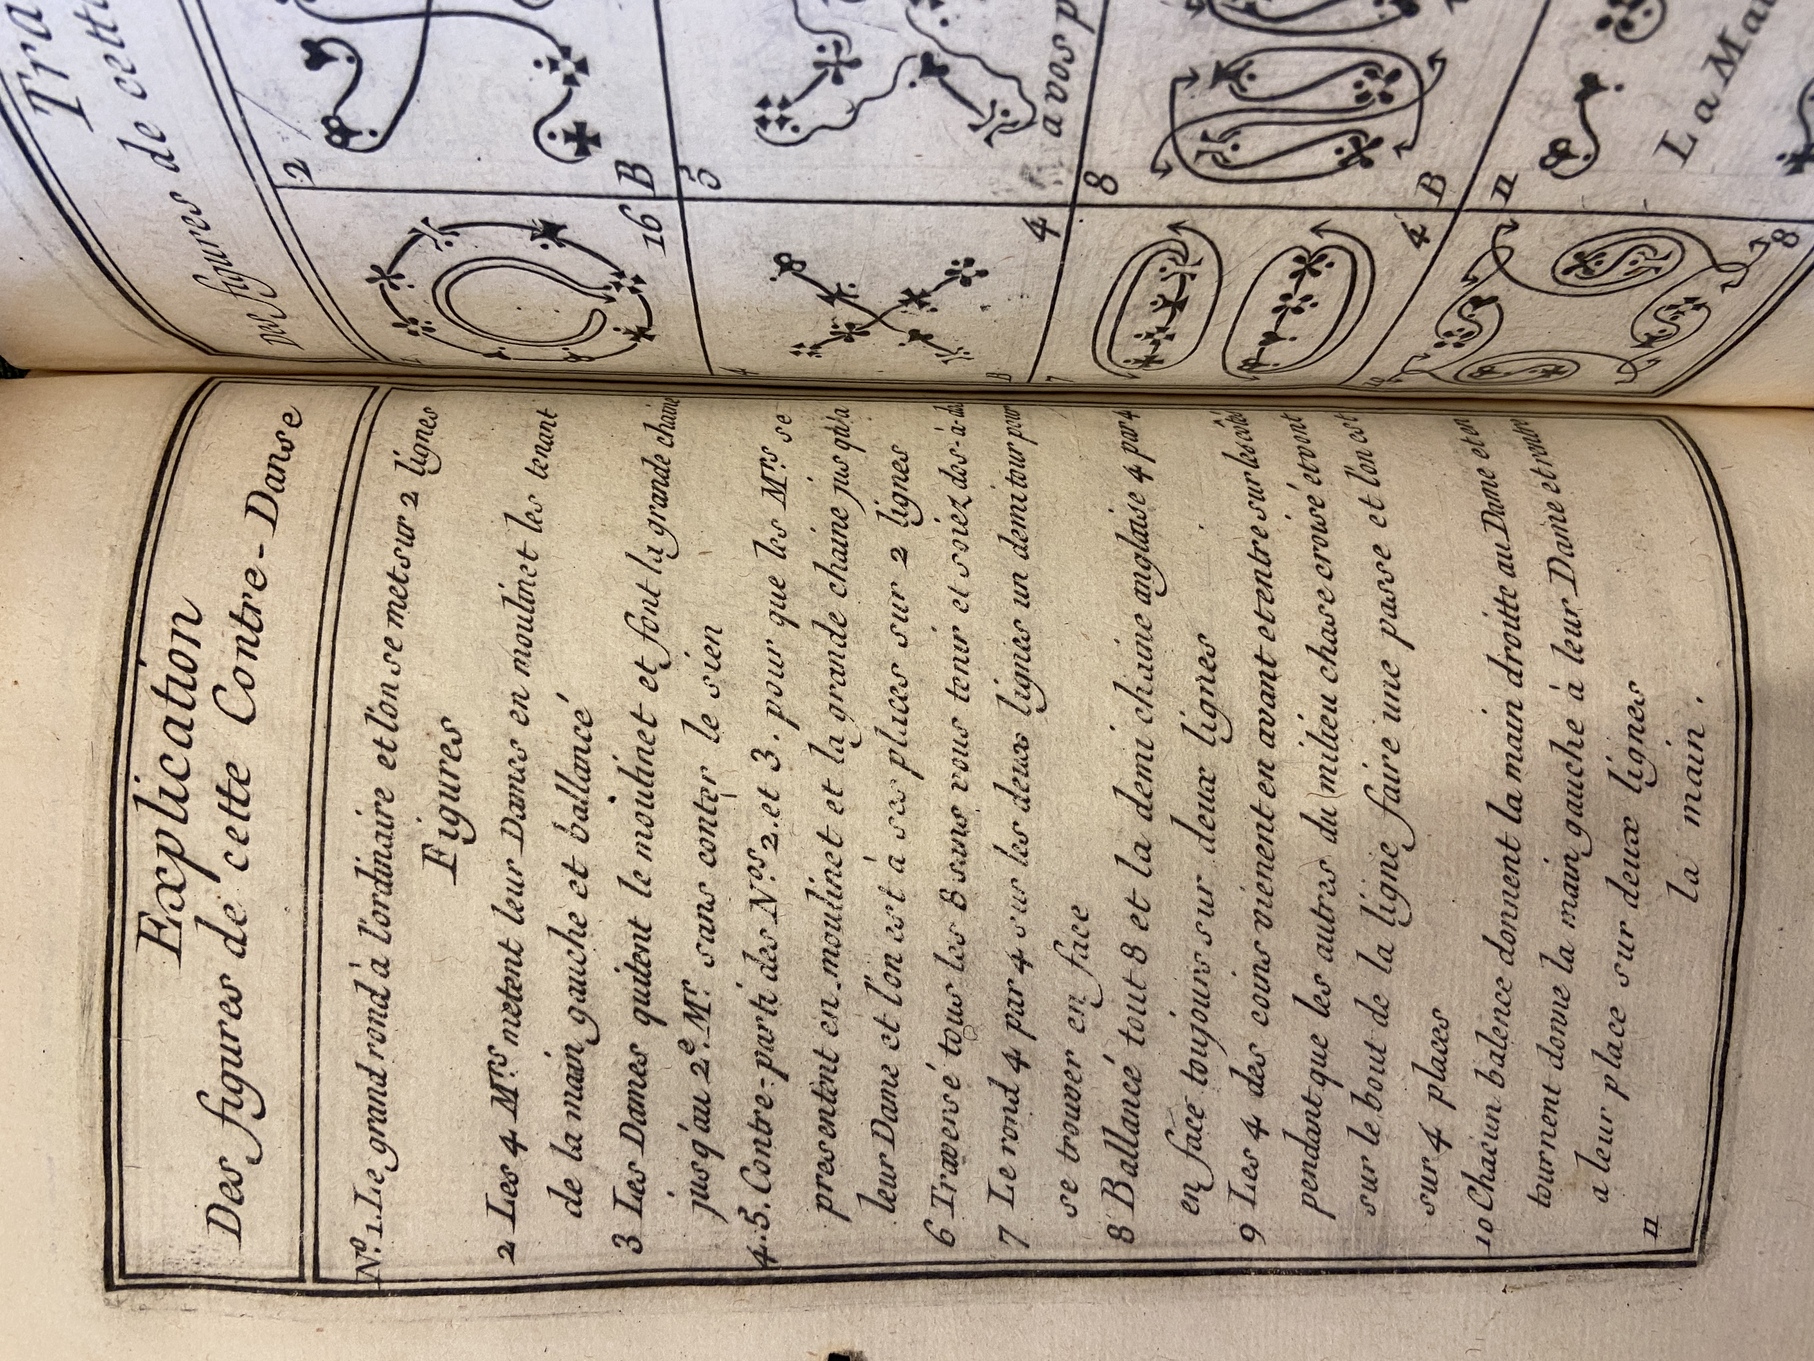 Explication
Des figures de cette Contre-Danse
No. 1. Le grand rond à l'ordinaire et l'on se met sur 2 lignes
Figures
2 Les 4 Mrs metent leur Dames en moulinet les tenant
de la main gauche et ballancé
3 Les Dames quitent le moulinet et font la grande chaine
jusq'au 2e. Mr. sans conter le sien
4.5. Contre-parti des Nos. 2. et 3. pour que les Mrs se
presentent en moulinet et la grande chaine jus qu'a
leur Dame et l'on est à ses places sur 2 lignes
6 Traversé tous les 8 sans vous tenir et soiez dos-à-dos
7 Le rond 4 par 4 sur les deux lignes un demi tour pour
se trouver en face
8 Ballancé tout 8 et la demi chaine anglaise 4 par 4
en face toujours sur deux lignes
9 Les 4 des coins vienent en avant et entre sur les côtés
pendant que les autres du milieu chase croisé et vont
sur le bout de la ligne faire une passe et l'on est
sur 4 places
10 Chacun balence donnent la main droitte au Dame et on
tournent donne la main gauche à leur Dame et
a leur place sur deux lignes
11 la main.
Tra
de cette
Des figures de
2
B
16
5
4
a vos p
4
B
7
8
B
4
11
La Mai
10
8